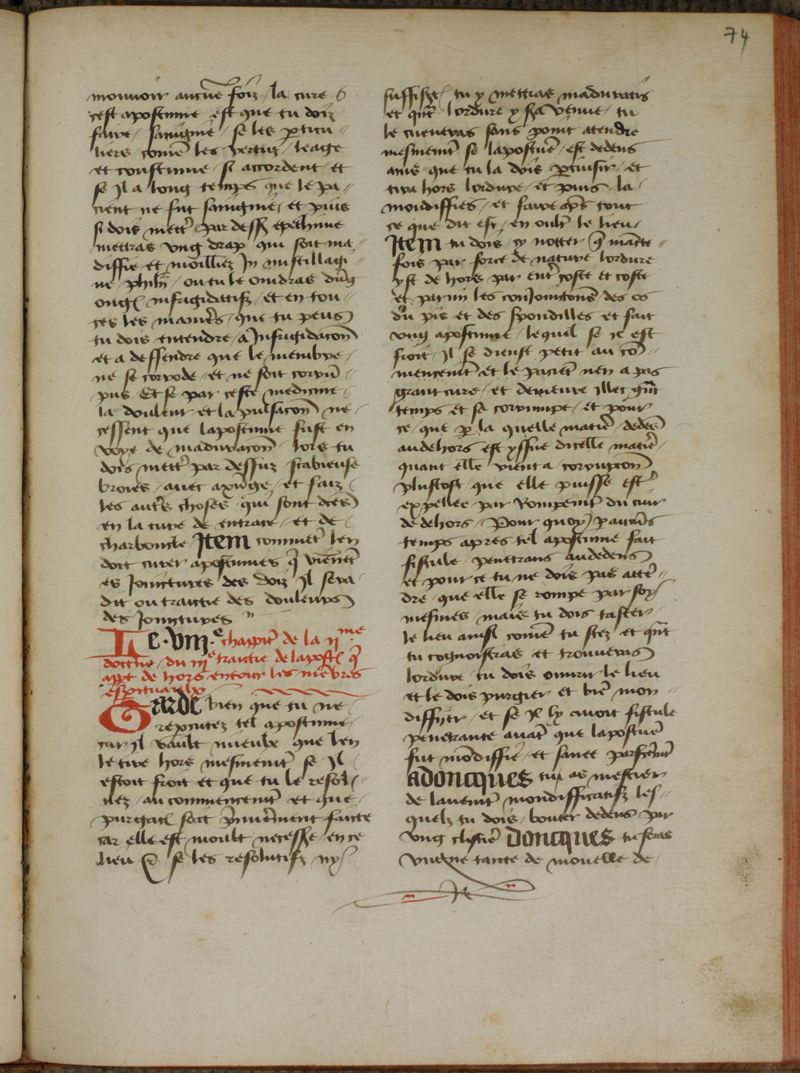 74
mouvoir aucune foiz / la cure
cest apostume est que tu doiz
faire / sanguine / se les prticu-
liers comme les vertuz / leage
et coustume / si accordent et
se il a long temps que le pa-
cient ne fut sanguine / et puis
si dois mettre par dessus epethime
mettras ung drap qui soit ma-
diffie et moilliez in mustillagi-
ne philii / ou tu le oindras dung
ongt infrigidatif / et en tou-
tes les manieres / que tu peus
tu dois entendre a infrigidacon
et a deffendre que le membre /
ne se corrode / et ne soit corrum-
pus Et se par ceste medicine
la douleur et la pulsacon ne
cessent que lapostume fust en
voye de maduracon / lors tu
dois mettre par dessus / scabieuse
broiee / avec axunge / et faiz
les autres choses qui sont dictes
en la cure de entrace / et de
charboncle Item comment len
doit curer apostumes qui viennent
es jointures des doiz il sera
dit ou traictie des douleurs
des jointures
Le .viii.e chappitre de la iime
doctrine / du iiie traictie de lapost qui
appt de hors entour les membres
espirituaulx
Garde bien que tu ne
repcutes tel apostume /
car il vault mieulx que len
le tire hors mesmement se il
estoit froit et que tu le resol-
vez / au commencement et que /
purgacion soit premierement faicte
car elle est moult necesse / en ce
lieu Et se les resolutifz ny
suffisent / tu y mettras maduratis
et quant lordure y sera venue / tu
le creveras sans point atendre
mesmement se lapostume / est dedens
ains que tu la dois percuisir / et
tira hors lordure / et puis la
mondiffies / et faire apres tout
ce que dit est / en oultre le lieu /
Item tu dois cy notter que mainte-
fois par force de nature lordure
yst de hors par entre coste et coste
et parmi les conjointons des os
du pis et des spondilles et fait
ung apostume / lequel se il est
froit / il se dieust petit au com-
mencement et le pacient nen a pas
grant cure / et demeure illec grant
temps et se corrumpt / et pour
ce que par la quelle matiere dedens
audehors est yssue dicelle matiere
quant elle vient a corrupcon
plustost que elle puisse estre
expellee par rompement du cuir
de dehors / Pour quoy / paucuns
temps apres tel apostume fait
fistule penetrans audedens
et pour ce tu ne dois pas atten-
dre que elle se rompe par soy
mesmes mais tu dois taster
le lieu ainsi comme tu scez / et quant
tu cognoistras et trouveras
lordure tu dois ouvrir le lieu
et le dois purgier et bien mon-
diffier / et se il ly avoit fistule
penetrante avant que lapostume
fut mondiffie / et sanee parfaitement
adoncques tu as mestier
de lavement mondifficatifz les-
quelz tu dois / bouter dedens par
ung clistere Doncques tu feras
une tante de mouelle de /